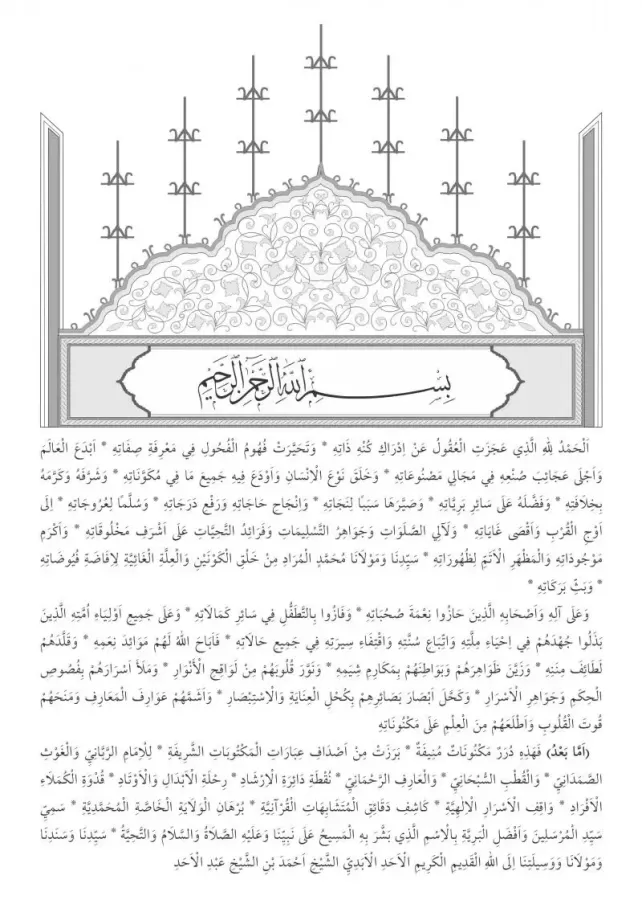 بِسْمِ اللَّهِ الرَّحْمَنِ الرَّحِيمِ
اَلْحَمْدُ لِلهِ الَّذِي عَجَزَتِ الْعُقُولُ عَنْ اِدْرَاكِ كُنْهِ ذَاتِهِ * وَتَحَيَّرَتْ فُهُومُ الْفُحُولِ فِي مَعْرِفَةِ صِفَاتِهِ * اَبْدَعَ الْعَالَمَ
وَاَجْلَى عَجَائِبَ صُنْعِهِ فِي مَجَالِي مَصْنُوعَاتِهِ * وَخَلَقَ نَوْعَ الْاِنْسَانِ وَاَوْدَعَ فِيهِ جَمِيعَ مَا فِي مُكَوَّنَاتِهِ * وَشَرَّفَهُ وَكَرَّمَهُ
بِخِلَافَتِهِ * وَفَضَّلَهُ عَلَى سَائِرِ بَرِيَّاتِهِ * وَصَيَّرَهَا سَبَبًا لِنَجَاتِهِ * وَاِنْجَاحِ حَاجَاتِهِ وَرَفْعِ دَرَجَاتِهِ * وَسُلَّمًا لِعُرُوجَاتِهِ * اِلَى
اَوْجِ الْقُرْبِ وَاَقْصَى غَايَاتِهِ * وَلَآلِي الصَّلَوَاتِ وَجَوَاهِرُ التَّسْلِيمَاتِ وَفَرَائِدُ التَّحِيَّاتِ عَلَى اَشْرَفِ مَخْلُوقَاتِهِ * وَاَكْرَمِ
مَوْجُودَاتِهِ وَالْمَظْهَرِ الْاَتَمِّ لِظُهُورَاتِهِ * سَيِّدِنَا وَمَوْلَانَا مُحَمَّدٍ الْمُرَادِ مِنْ خَلْقِ الْكَوْنَيْنِ وَالْعِلَّةِ الْغَائِيَّةِ لِاِفَاضَةِ فُيُوضَاتِهِ
* وَبَثِّ بَرَكَاتِهِ *
وَعَلَى آلِهِ وَاَصْحَابِهِ الَّذِينَ حَازُوا نِعْمَةَ صُحْبَاتِهِ * وَفَازُوا بِالتَّطَفُّلِ فِي سَائِرِ كَمَالَاتِهِ * وَعَلَى جَمِيعِ اَوْلِيَاءِ اُمَّتِهِ الَّذِينَ
بَذَلُوا جُهْدَهُمْ فِي اِحْيَاءِ مِلَّتِهِ وَاتِّبَاعِ سُنَّتِهِ وَاقْتِفَاءِ سِيرَتِهِ فِي جَمِيعِ حَالَاتِهِ * فَاَبَاحَ اللهُ لَهُمْ مَوَائِدَ نِعَمِهِ * وَقَلَّدَهُمْ
لَطَائِفَ مِنَنِهِ * وَزَيَّنَ ظَوَاهِرَهُمْ وَبَوَاطِنَهُمْ بِمَكَارِمِ شِيَمِهِ * وَنَوَّرَ قُلُوبَهُمْ مِنْ لَوَاقِحِ الْأَنْوَارِ * وَمَلَأَ اَسْرَارَهُمْ بِفُصُوصِ
الْحِكَمِ وَجَوَاهِرِ الْاَسْرَارِ * وَكَحَّلَ اَبْصَارَ بَصَائِرِهِمْ بِكُحْلِ الْعِنَايَةِ وَالْاِسْتِبْصَارِ * وَاَشَمَّهُمْ عَوَارِفَ الْمَعَارِفِ وَمَنَحَهُمْ
قُوتَ الْقُلُوبِ وَاَطْلَعَهُمْ مِنَ الْعِلْمِ عَلَى مَكْنُونَاتِهِ
(اَمَّا بَعْدُ) فَهَذِهِ دُرَرٌ مَكْنُونَاتٌ مُنِيفَةٌ * بَرَزَتْ مِنْ اَصْدَافِ عِبَارَاتِ الْمَكْتُوبَاتِ الشَّرِيفَةِ * لِلْاِمَامِ الرَّبَّانِيِّ وَالْغَوْثِ
الصَّمَدَانِيِّ * وَالْقُطْبِ السُّبْحَانِيِّ * وَالْعَارِفِ الرَّحْمَانِيِّ * نُقْطَةِ دَائِرَةِ الْاِرْشَادِ * رِحْلَةِ الْاَبْدَالِ وَالْاَوْتَادِ * قُدْوَةِ الْكُمَلَاءِ
الْاَفْرَادِ * وَاقِفِ الْاَسْرَارِ الْاِلٰهِيَّةِ * كَاشِفِ دَقَائِقِ الْمُتَشَابِهَاتِ الْقُرْآنِيَّةِ * بُرْهَانِ الْوِلَايَةِ الْخَاصَّةِ الْمُحَمَّدِيَّةِ * سَمِيِّ
سَيِّدِ الْمُرْسَلِينَ وَاَفْضَلِ الْبَرِيَّةِ بِالْاِسْمِ الَّذِي بَشَّرَ بِهِ الْمَسِيحُ عَلَى نَبِيِّنَا وَعَلَيْهِ الصَّلَاةُ وَالسَّلَامُ وَالتَّحِيَّةُ * سَيِّدِنَا وَسَنَدِنَا
وَمَوْلَانَا وَوَسِيلَتِنَا اِلَى اللهِ الْقَدِيمِ الْكَرِيمِ الْاَحَدِ الْاَبَدِيِّ الشَّيْخِ اَحْمَدَ بْنِ الشَّيْخِ عَبْدِ الْاَحَدِ